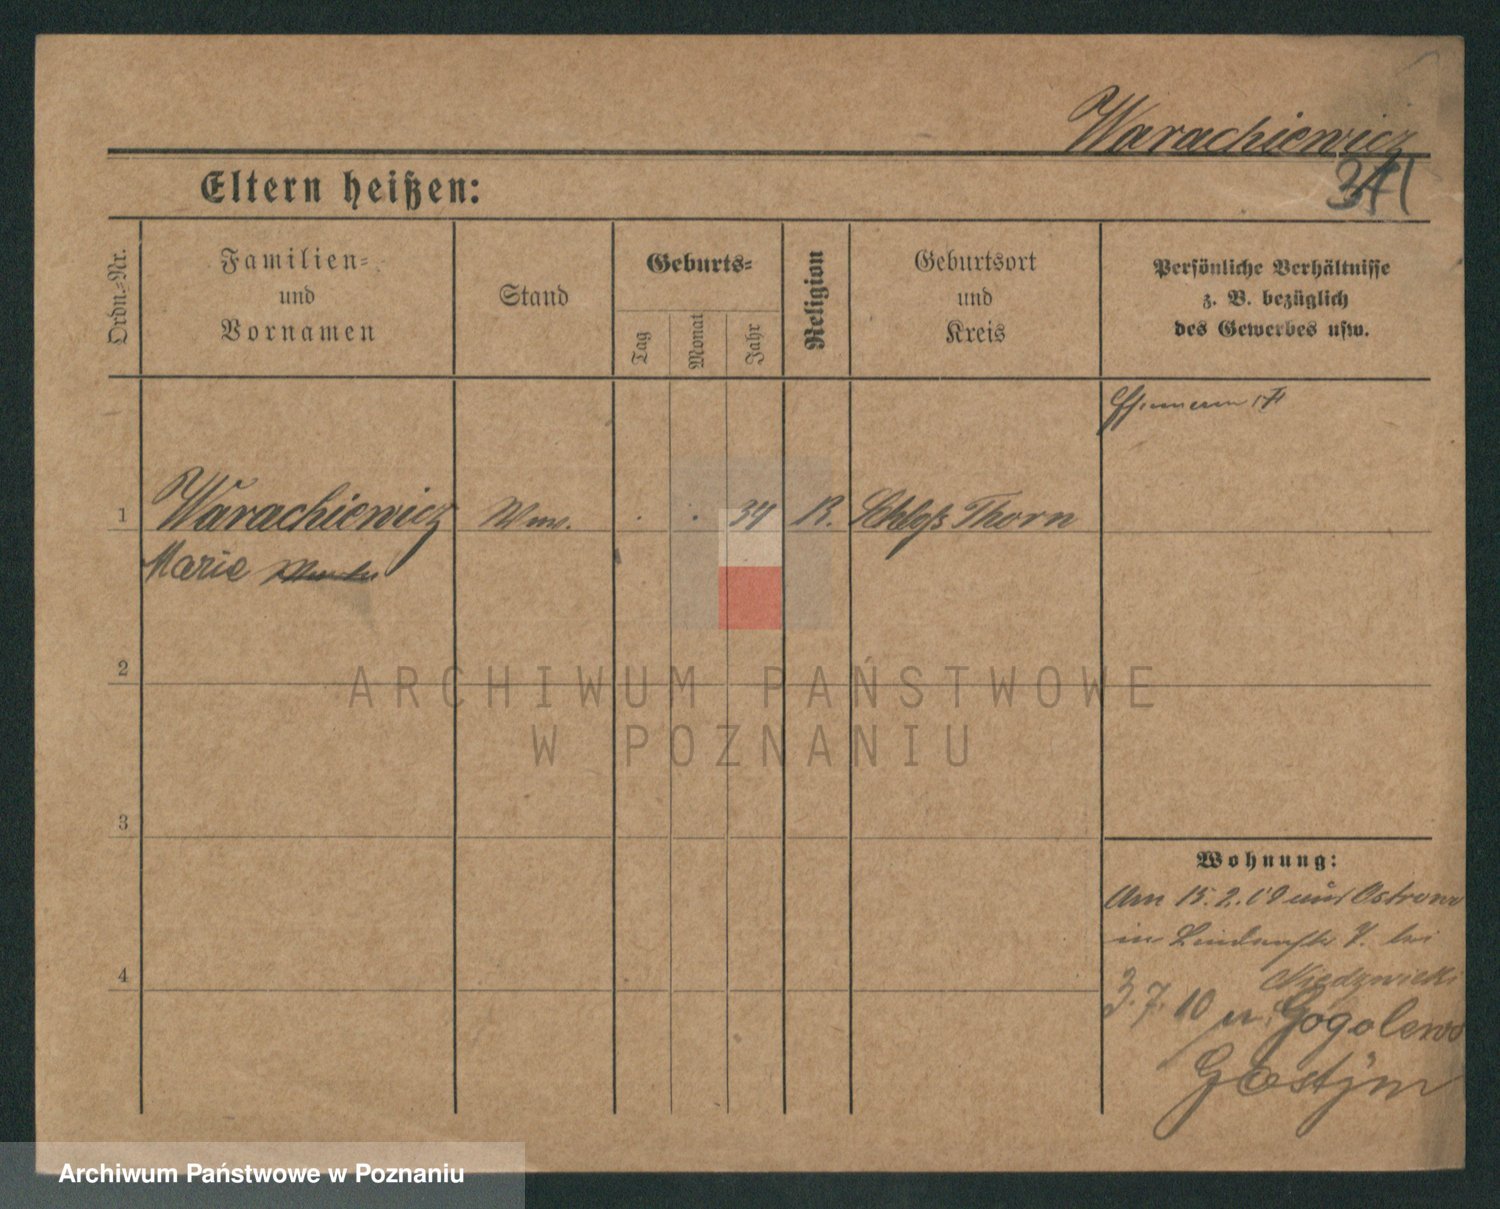 Warachiewicz
Eltern heißen:
Ordn.-Nr.
Familien-
und
Vornamen
Stand
Geburts-
Tag
Monat
Jahr
Religion
Geburtsort
und
Kreis
Persönliche Verhältnisse
z. B. bezüglich
des Gewerbes usw.
1
Warachiewicz
Marie
Wwe.
34
R.
Schloß Thorn
2
3
4
Wohnung:
Am 15.2.09 aus Ostrowo
in Lindenstr 7. bei
Niedzwiecki
3.7.10 n. Gogolewo
Gostyn
ARCHIWUM PAŃSTWOWE
W POZNANIU
Archiwum Państwowe w Poznaniu